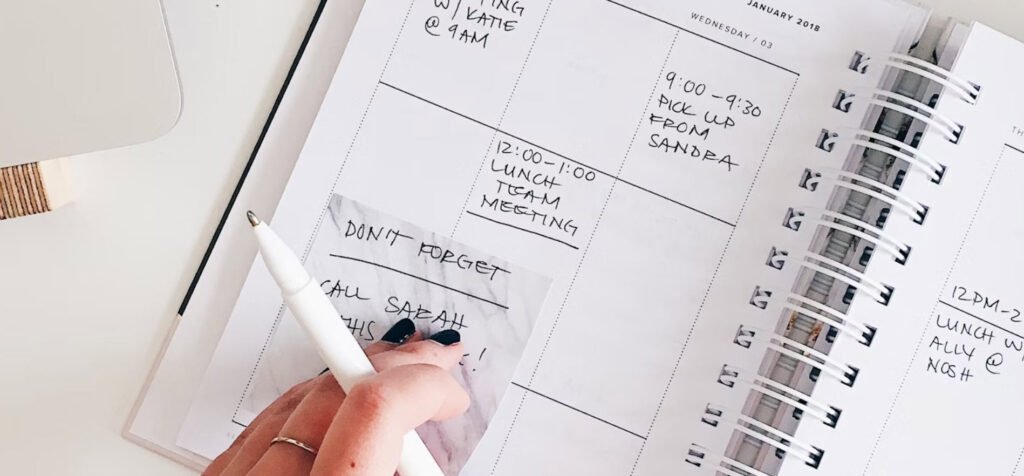 JANUARY 2018
WEDNESDAY / 03
W/ KATIE
@ 9AM
9:00 - 9:30
PICK UP
FROM
SANDRA
12:00 - 1:00
LUNCH
TEAM
MEETING
DON'T FORGET
CALL SARAH
THIS
!
12PM-2
LUNCH W
ALLY @
NOSH